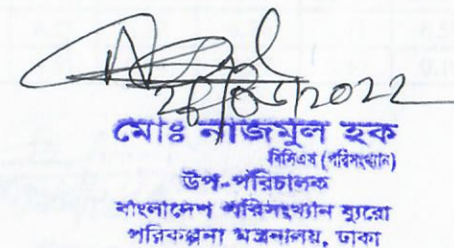 মোঃ নাজমুল হক
বিসিএস (পরিসংখ্যান)
উপ-পরিচালক
বাংলাদেশ পরিসংখ্যান ব্যুরো
পরিকল্পনা মন্ত্রনালয়, ঢাকা